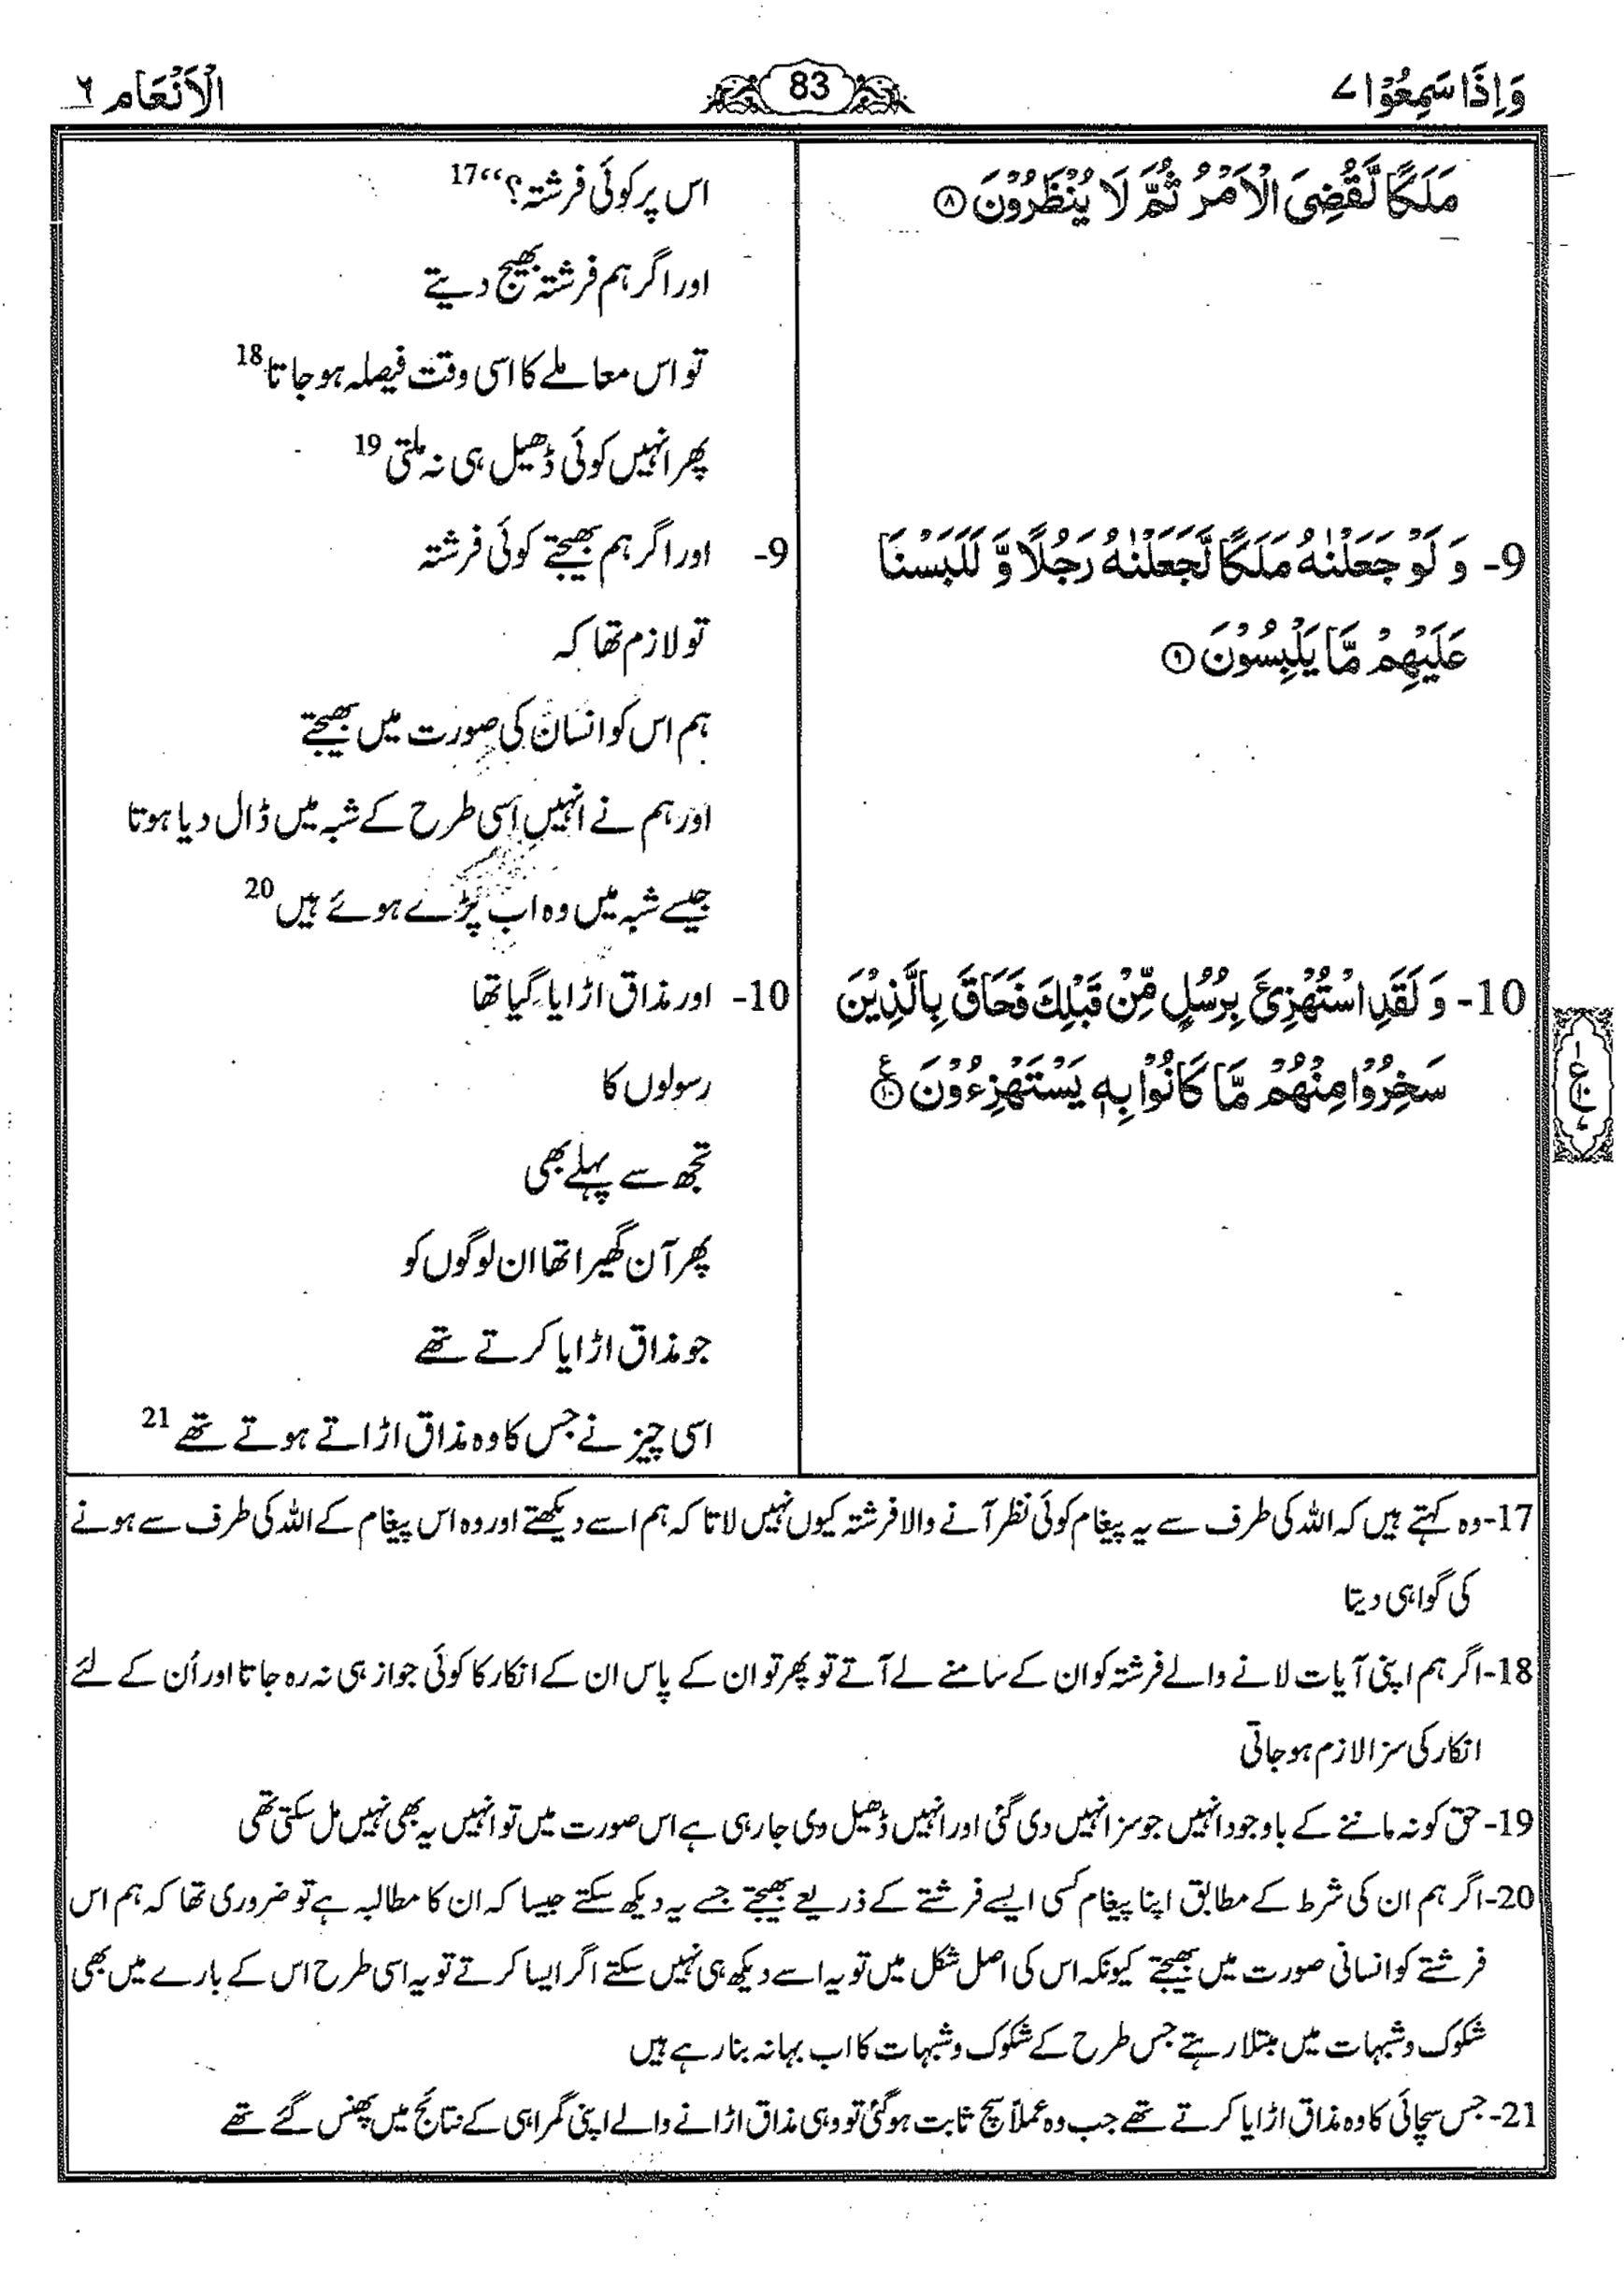 وَاِذَا سَمِعُوْا ۷
83
الْاَنْعَام ۶
مَلَكًا لَّقُضِیَ الْاَمْرُ ثُمَّ لَا یُنْظَرُوْنَ ۝۸
9- وَ لَوْ جَعَلْنٰهُ مَلَكًا لَّجَعَلْنٰهُ رَجُلًا وَّ لَلَبَسْنَا
عَلَیْهِمْ مَّا یَلْبِسُوْنَ ۝۹
10- وَ لَقَدِ اسْتُهْزِئَ بِرُسُلٍ مِّنْ قَبْلِكَ فَحَاقَ بِالَّذِیْنَ
سَخِرُوْا مِنْهُمْ مَّا كَانُوْا بِهٖ یَسْتَهْزِءُوْنَ ۝۱۰ ع
اس پر کوئی فرشتہ؟‘‘ 17
اور اگر ہم فرشتہ بھیج دیتے
تو اس معاملے کا اسی وقت فیصلہ ہو جاتا 18
پھر انہیں کوئی ڈھیل ہی نہ ملتی 19
9- اور اگر ہم بھیجتے کوئی فرشتہ
تو لازم تھا کہ
ہم اس کو انسان کی صورت میں بھیجتے
اور ہم نے انہیں اسی طرح کے شبہ میں ڈال دیا ہوتا
جیسے شبہ میں وہ اب پڑے ہوئے ہیں 20
10- اور مذاق اڑایا گیا تھا
رسولوں کا
تجھ سے پہلے بھی
پھر آن گھیرا تھا ان لوگوں کو
جو مذاق اڑایا کرتے تھے
اسی چیز نے جس کا وہ مذاق اڑاتے ہوتے تھے 21
17- وہ کہتے ہیں کہ اللہ کی طرف سے یہ پیغام کوئی نظر آنے والا فرشتہ کیوں نہیں لاتا کہ ہم اسے دیکھتے اور وہ اس پیغام کے اللہ کی طرف سے ہونے
کی گواہی دیتا
18- اگر ہم اپنی آیات لانے والے فرشتہ کو ان کے سامنے لے آتے تو پھر تو ان کے پاس ان کے انکار کا کوئی جواز ہی نہ رہ جاتا اور اُن کے لئے
انکار کی سزا لازم ہو جاتی
19- حق کو نہ ماننے کے باوجود انہیں جو سزا نہیں دی گئی اور انہیں ڈھیل دی جا رہی ہے اس صورت میں تو انہیں یہ بھی نہیں مل سکتی تھی
20- اگر ہم ان کی شرط کے مطابق اپنا پیغام کسی ایسے فرشتے کے ذریعے بھیجتے جسے یہ دیکھ سکتے جیسا کہ ان کا مطالبہ ہے تو ضروری تھا کہ ہم اس
فرشتے کو انسانی صورت میں بھیجتے کیونکہ اس کی اصل شکل میں تو یہ اسے دیکھ ہی نہیں سکتے اگر ایسا کرتے تو یہ اسی طرح اس کے بارے میں بھی
شکوک و شبہات میں مبتلا رہتے جس طرح کے شکوک و شبہات کا اب بہانہ بنا رہے ہیں
21- جس سچائی کا وہ مذاق اڑایا کرتے تھے جب وہ عملاً سچ ثابت ہو گئی تو وہی مذاق اڑانے والے اپنی گمراہی کے نتائج میں پھنس گئے تھے